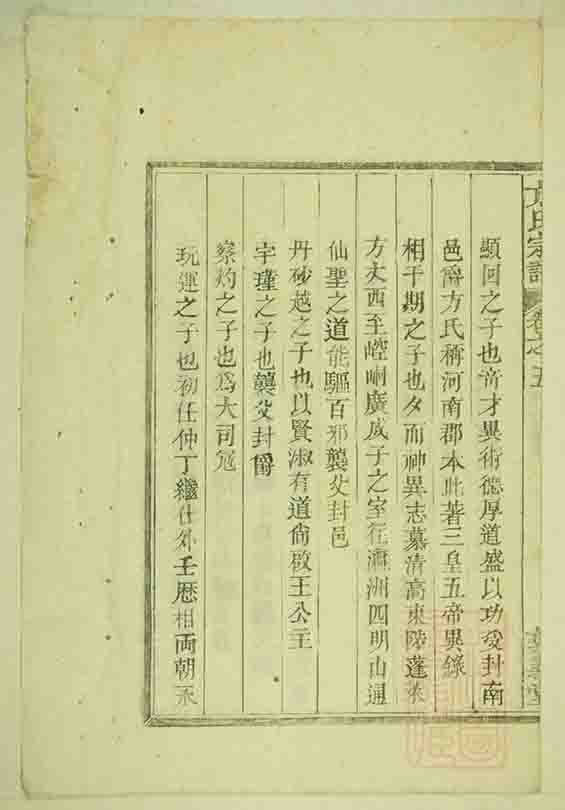 方氏宗譜 卷之五
顯囘之子也竒才異術德厚道盛以功受封南
邑爵方氏稱河南郡本此著三皇五帝異錄
相千期之子也夕而神異志慕清高東陸蓬萊
方丈西至崆峒廣成子之室在瀛洲四明山通
仙聖之道能驅百邪襲父封邑
丹砂越之子也以賢淑有道尙啟王公主
宇瑾之子也襲父封爵
察灼之子也爲大司冦
玩運之子也初任仲丁繼仕外壬歴相兩朝永